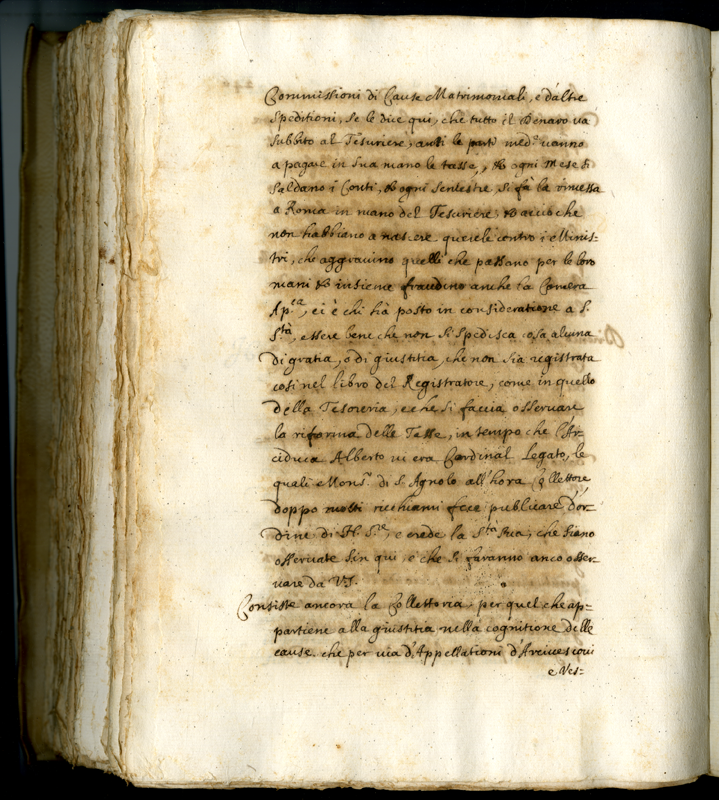 Commissioni di Cause Matrimoniali, e d'altre
speditioni, se le dice qui, che tutto il Denaro va
subbito al Tesoriere, anzi le parti med.e vanno
a pagare in sua mano le tasse, & ogni mese si
saldano i Conti, & ogni semestre, si fà la rimessa
a Roma in mano del Tesoriere & acciò che
non habbiano a nascere querele contro i Minis=
tri, che aggravino quelli che passano per le loro
mani & insieme fraudino anche la Camera
Ap.ca, ci è chi hà posto in consideratione a S.
S.tà, essere bene che non si spedisca cosa alcuna
di gratia, ò di giustitia, che non sia registrata
cosi nel libro del Registratore, come in quello
della Tesoreria, e che si faccia osservare
la riforma delle Tasse, in tempo che l'Ar-
ciduca Alberto vi era Cardinal Legato, le
quali Mons.r di S. Agnolo all'hora Collettore
doppo molti richiami fece publicare d'or-
dine di N. S.re, e crede la S.tà Sua, che siano
osservate sin qui, e che si faranno anco osser-
vare da V.S.
Consiste ancora la Collettoria, per quel che ap=
partiene alla giustitia nella cognitione delle
cause. che per via d'Appellationi d'Arcivescovi
e Ves=